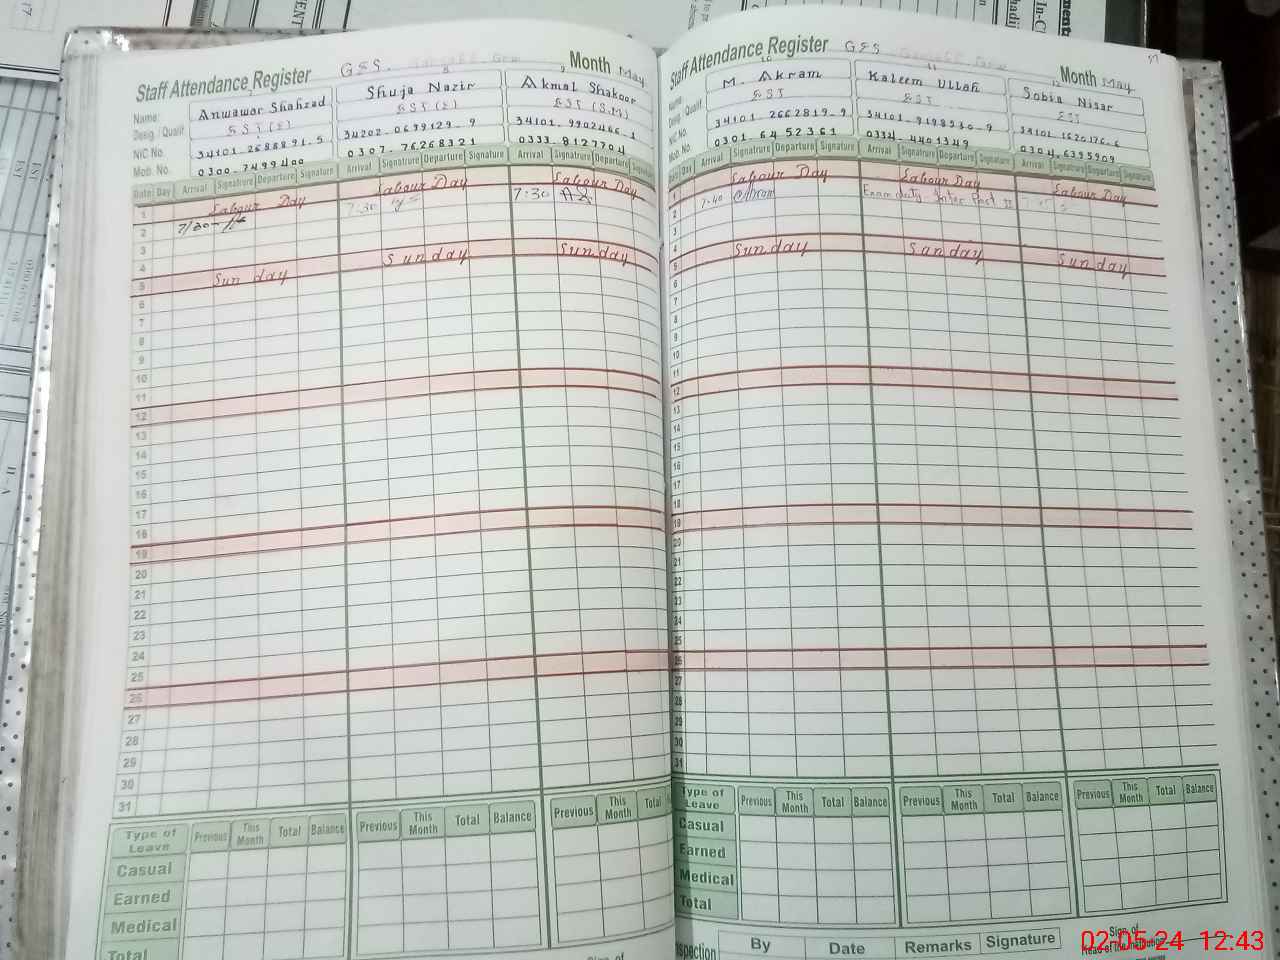 Staff Attendance Register G E S. Month May
Name: Anwawar Shahzad Shuja Nazir Akmal Shakoor
Desig / Qualif. EST (E) EST (E) EST (S.M)
NIC No. 34101.2688891.5 34202.0699129.9 34101.9902466.1
Mob. No. 0300.7499400 0307.76268321 0333.8127704
Date Day Arrival Signature Departure Signature Arrival Signature Departure Signature Arrival Signature Departure Signature
1 Labour Day Labour Day Labour Day
2 7/30 7:30 7:30
3
4
5 Sunday Sunday Sunday
6
7
8
9
10
11
12
13
14
15
16
17
18
19
20
21
22
23
24
25
26
27
28
29
30
31
Type of Leave Previous This Month Total Balance Previous This Month Total Balance Previous This Month Total
Casual
Earned
Medical
Total
Staff Attendance Register G E S Month May
Name: M. Akram Kaleem Ullah Sobia Nisar
Desig / Qualif EST EST EST
NIC No. 34101 2662819.9 34101.9198530.9 34101.1620176.6
Mob. No. 0301.6452361 0334.4401349 0304.6395909
Day Arrival Signature Departure Signature Arrival Signature Departure Signature Arrival Signature Departure Signature
1 Labour Day Labour Day Labour Day
2 7:40 Akram Exam duty Inter Part II
3
4
5 Sunday Sunday Sunday
6
7
8
9
10
11
12
13
14
15
16
17
18
19
20
21
22
23
24
25
26
27
28
29
30
31
Type of Leave Previous This Month Total Balance Previous This Month Total Balance Previous This Month Total Balance
Casual
Earned
Medical
Total
By Date Remarks Signature
Sign. of
Head of the Institution
02-05-24 12:43